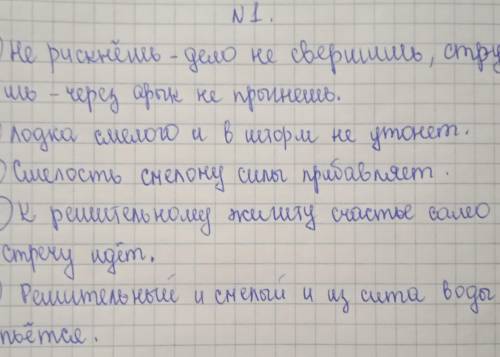 N1.
) Не рискнёшь - дело не свершишь, стру
ишь - через арык не прыгнешь.
лодка смелого и в шторм не утонет.
) Смелость смелому силы прибавляет.
) К решительному жигиту счастье само
стречу идёт.
) Решительный и смелый и из сита воды
пьётся.